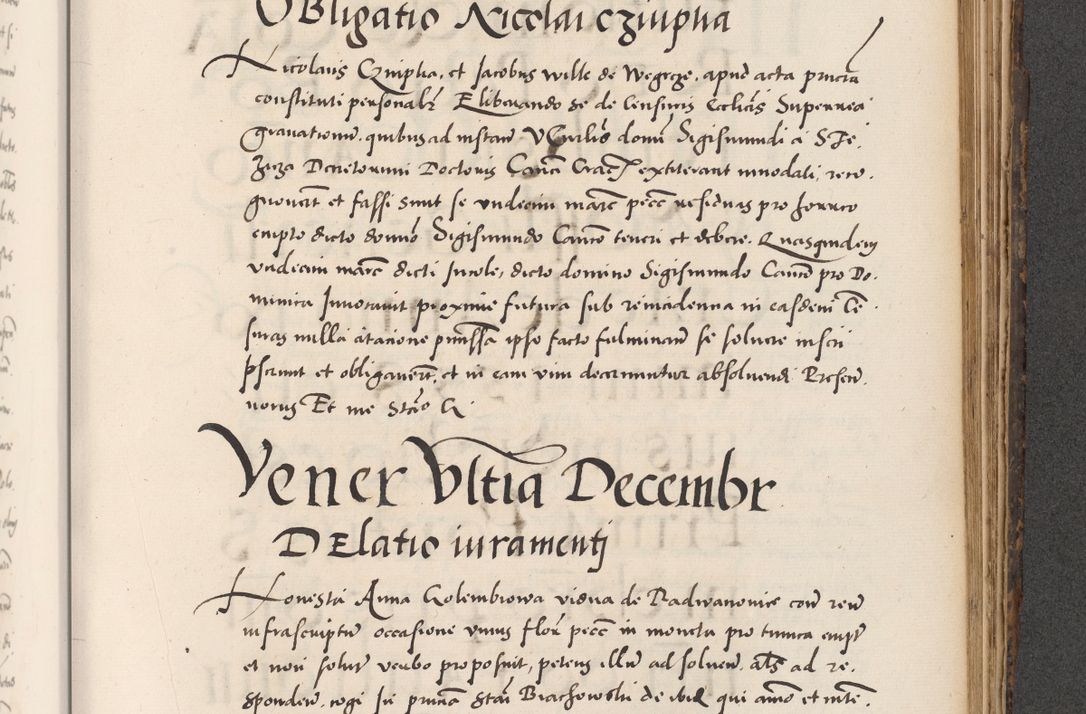 OBligatio Nicolai czwplia
Nicolaus Czwplia, et Jacobus wille de Wegrcze, apud acta pncia
constituti personalr Eliberando se de Censuris Ecclicis Superurea
gravationu quibus ad instan VGnrlis domi Sigismundi a Ste,
zicza Decretorum Doctoris Canci Crac extiterant innodati, reco,
gnovert et fassi sunt se undecim marc pecc residuas pro
empto dicto domno Sigismundo Canco teneri et debere. Quasquidem
undecim marc dicti Incole, dicto domino Sigismundo Canco pro Do,
minica Invocavit proxime futura sub reincidencia in easdem Ce
suras nulla citacione pmissa ipso facto fulminan se solvere inscri
pserunt et obligavert, et in eam vim decernuntur absolvendi Presen,
norus Et me
Vener Vltia Decembr
DElatio iuramentj
Honesta Anna Golembiowa vidua de Radwanovice con reu
infrascriptu occasione unius flor pecc in moneta pro tunica empt
et non solut verbo proposuit, petens illu ad solven, als ad re,
sponden, cogi Is pncia Stani Biachowski de ibid qui aio et inte,